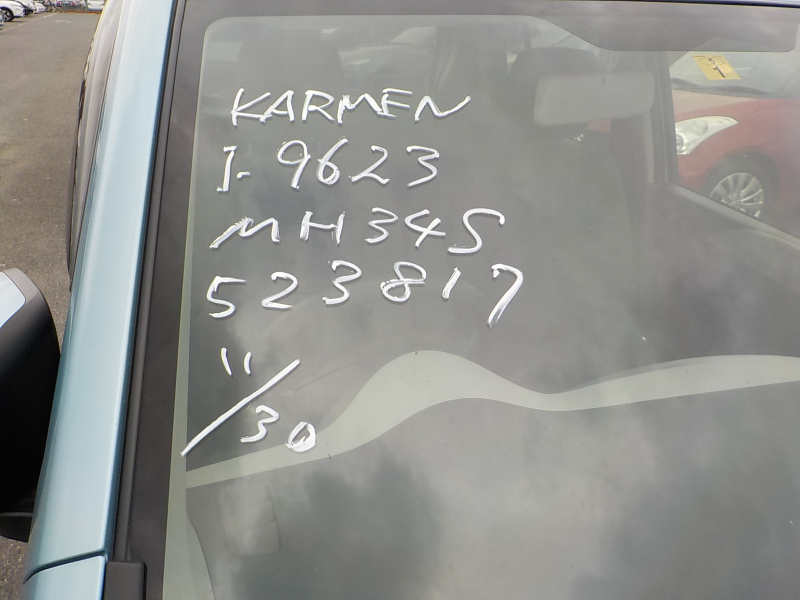 KARMEN
I-9623
MH34S
523817
11/30